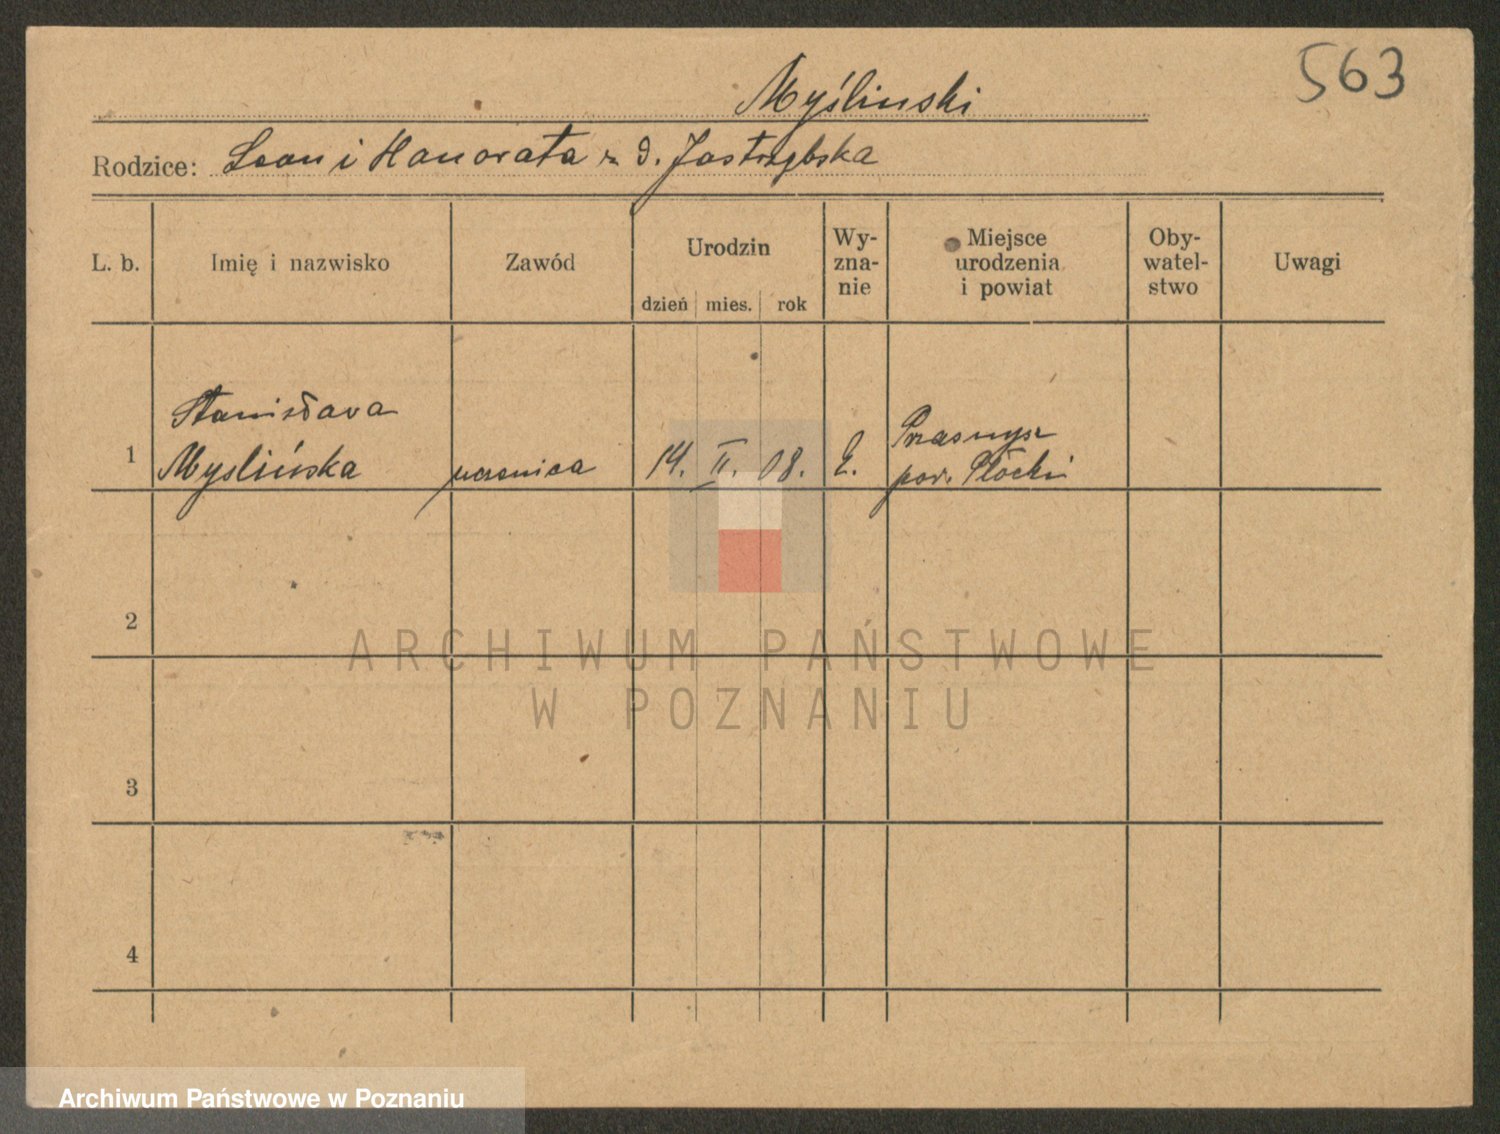 563
Myślinski
Rodzice: Leon i Honorata z d. Jastrzębska
L. b. Imię i nazwisko Zawód Urodzin dzień mies. rok Wy-zna-nie Miejsce urodzenia i powiat Oby-watel-stwo Uwagi
Stanisława
1 Myslińska uczenica 14. II. 08. Przasnysz
pow. Płocki
2
3
4
ARCHIWUM PAŃSTWOWE
W POZNANIU
Archiwum Państwowe w Poznaniu